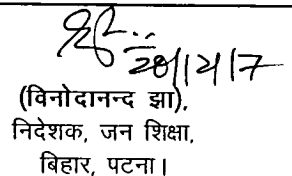 28/12/17
(विनोदानन्द झा),
निदेशक, जन शिक्षा,
बिहार, पटना।